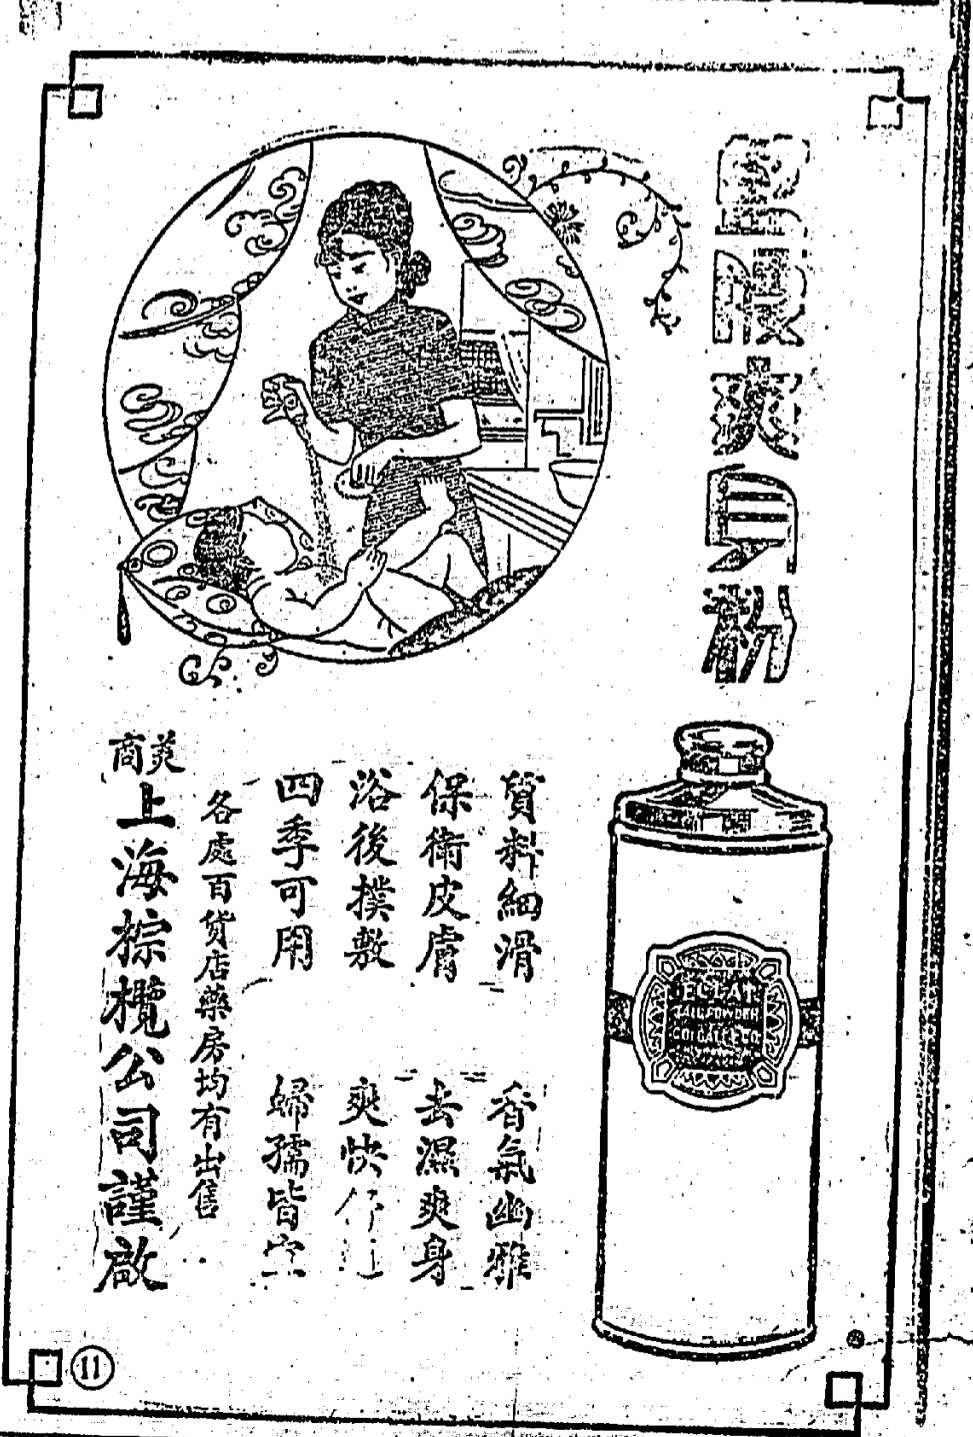 爽身粉
ECLAT
TALC POWDER
COLGATE & CO.
質料細滑 香氣幽雅
保衛皮膚 去濕爽身
浴後撲敷 爽快
四季可用 婦孺皆宜
各處百貨店藥房均有出售
美商上海棕欖公司謹啟
11